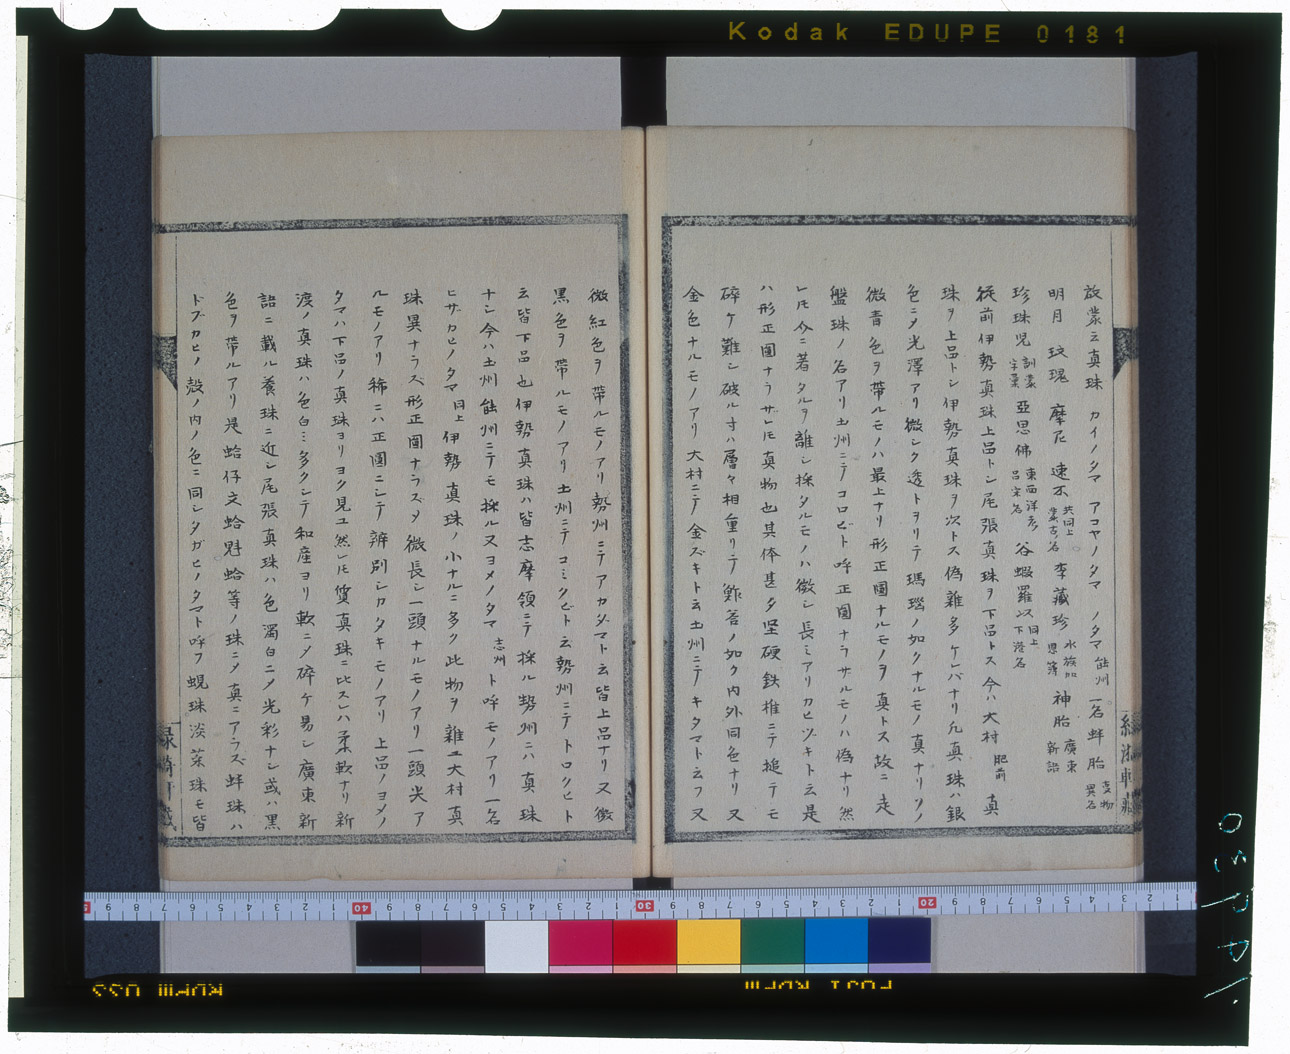 Kodak EDUPE 0181
啓蒙云真珠 カイノタマ アコヤノタマ ノタマ 能州 一名蚌胎 事物異名
明月 玟瑰 摩尼 速不 共同上蒙古名 李藏珍 水族加恩簿 神胎 廣東新語
珍珠児 訓蒙字彙 亞思佛 東西洋考呂宋名 谷蝦羅 同上下港名
従前伊勢真珠上品トシ尾張真珠ヲ下品トス今ハ大村 肥前 真
珠ヲ上品トシ伊勢真珠ヲ次トス偽雜多ケレバナリ凡真珠ハ銀
色ニメ光澤アリ微シク透トヲリテ瑪瑙ノ如クナルモノ真ナリソノ
微青色ヲ帶ルモノハ最上ナリ形正圓ナルモノヲ真トス故ニ走
盤珠ノ名アリ土州ニテコロビト呼正圓ナラサルモノハ偽ナリ然
レ𪜈今ニ著タルヲ離シ採タルモノハ微シ長ミアリカヒツキト云是
ハ形正圓ナラザレ𪜈真物也其体甚タ堅硬鉄椎ニテ搥テモ
碎ケ難シ破ル寸ハ層々相重リテ鮓荅ノ如ク内外同色ナリ又
金色ナルモノアリ大村ニテ金ズキト云土州ニテキタマト云フ又
微紅色ヲ帶ルモノアリ勢州ニテアカダマト云皆上品ナリ又微
黒色ヲ帶ルモノアリ土州ニテコミクビト云勢州ニテトロクヒト
云皆下品也伊勢真珠ハ皆志摩領ニテ採ル勢州ニハ真珠
ナシ今ハ土州能州ニテモ採ル又ヨメノタマ 志州 ト呼モノアリ一名
ヒザカヒノタマ 同上 伊勢真珠ノ小ナルニ多ク此物ヲ雜ユ大村真
珠異ナラズ形正圓ナラズメ微長シ一頭ナルモノアリ一頭尖ア
ルモノアリ稀ニハ正圓ニシテ辨別シカタキモノアリ上品ノヨメノ
タマハ下品ノ真珠ヨリヨク見ユ然レ𪜈質真珠ニ比スレハ柔軟ナリ新
渡ノ真珠ハ色白ミ多クシテ和産ヨリ軟ニメ碎ケ易シ廣東新
語ニ載ル養珠ニ近シ尾張真珠ハ色濁白ニメ光彩ナシ或ハ黒
色ヲ帶ルアリ是蛤仔文蛤魁蛤等ノ珠ニメ真ニアラズ蚌珠ハ
ドブカヒノ殻ノ内ノ色ニ同シタガヒノタマト呼フ蜆珠淡菜珠モ皆